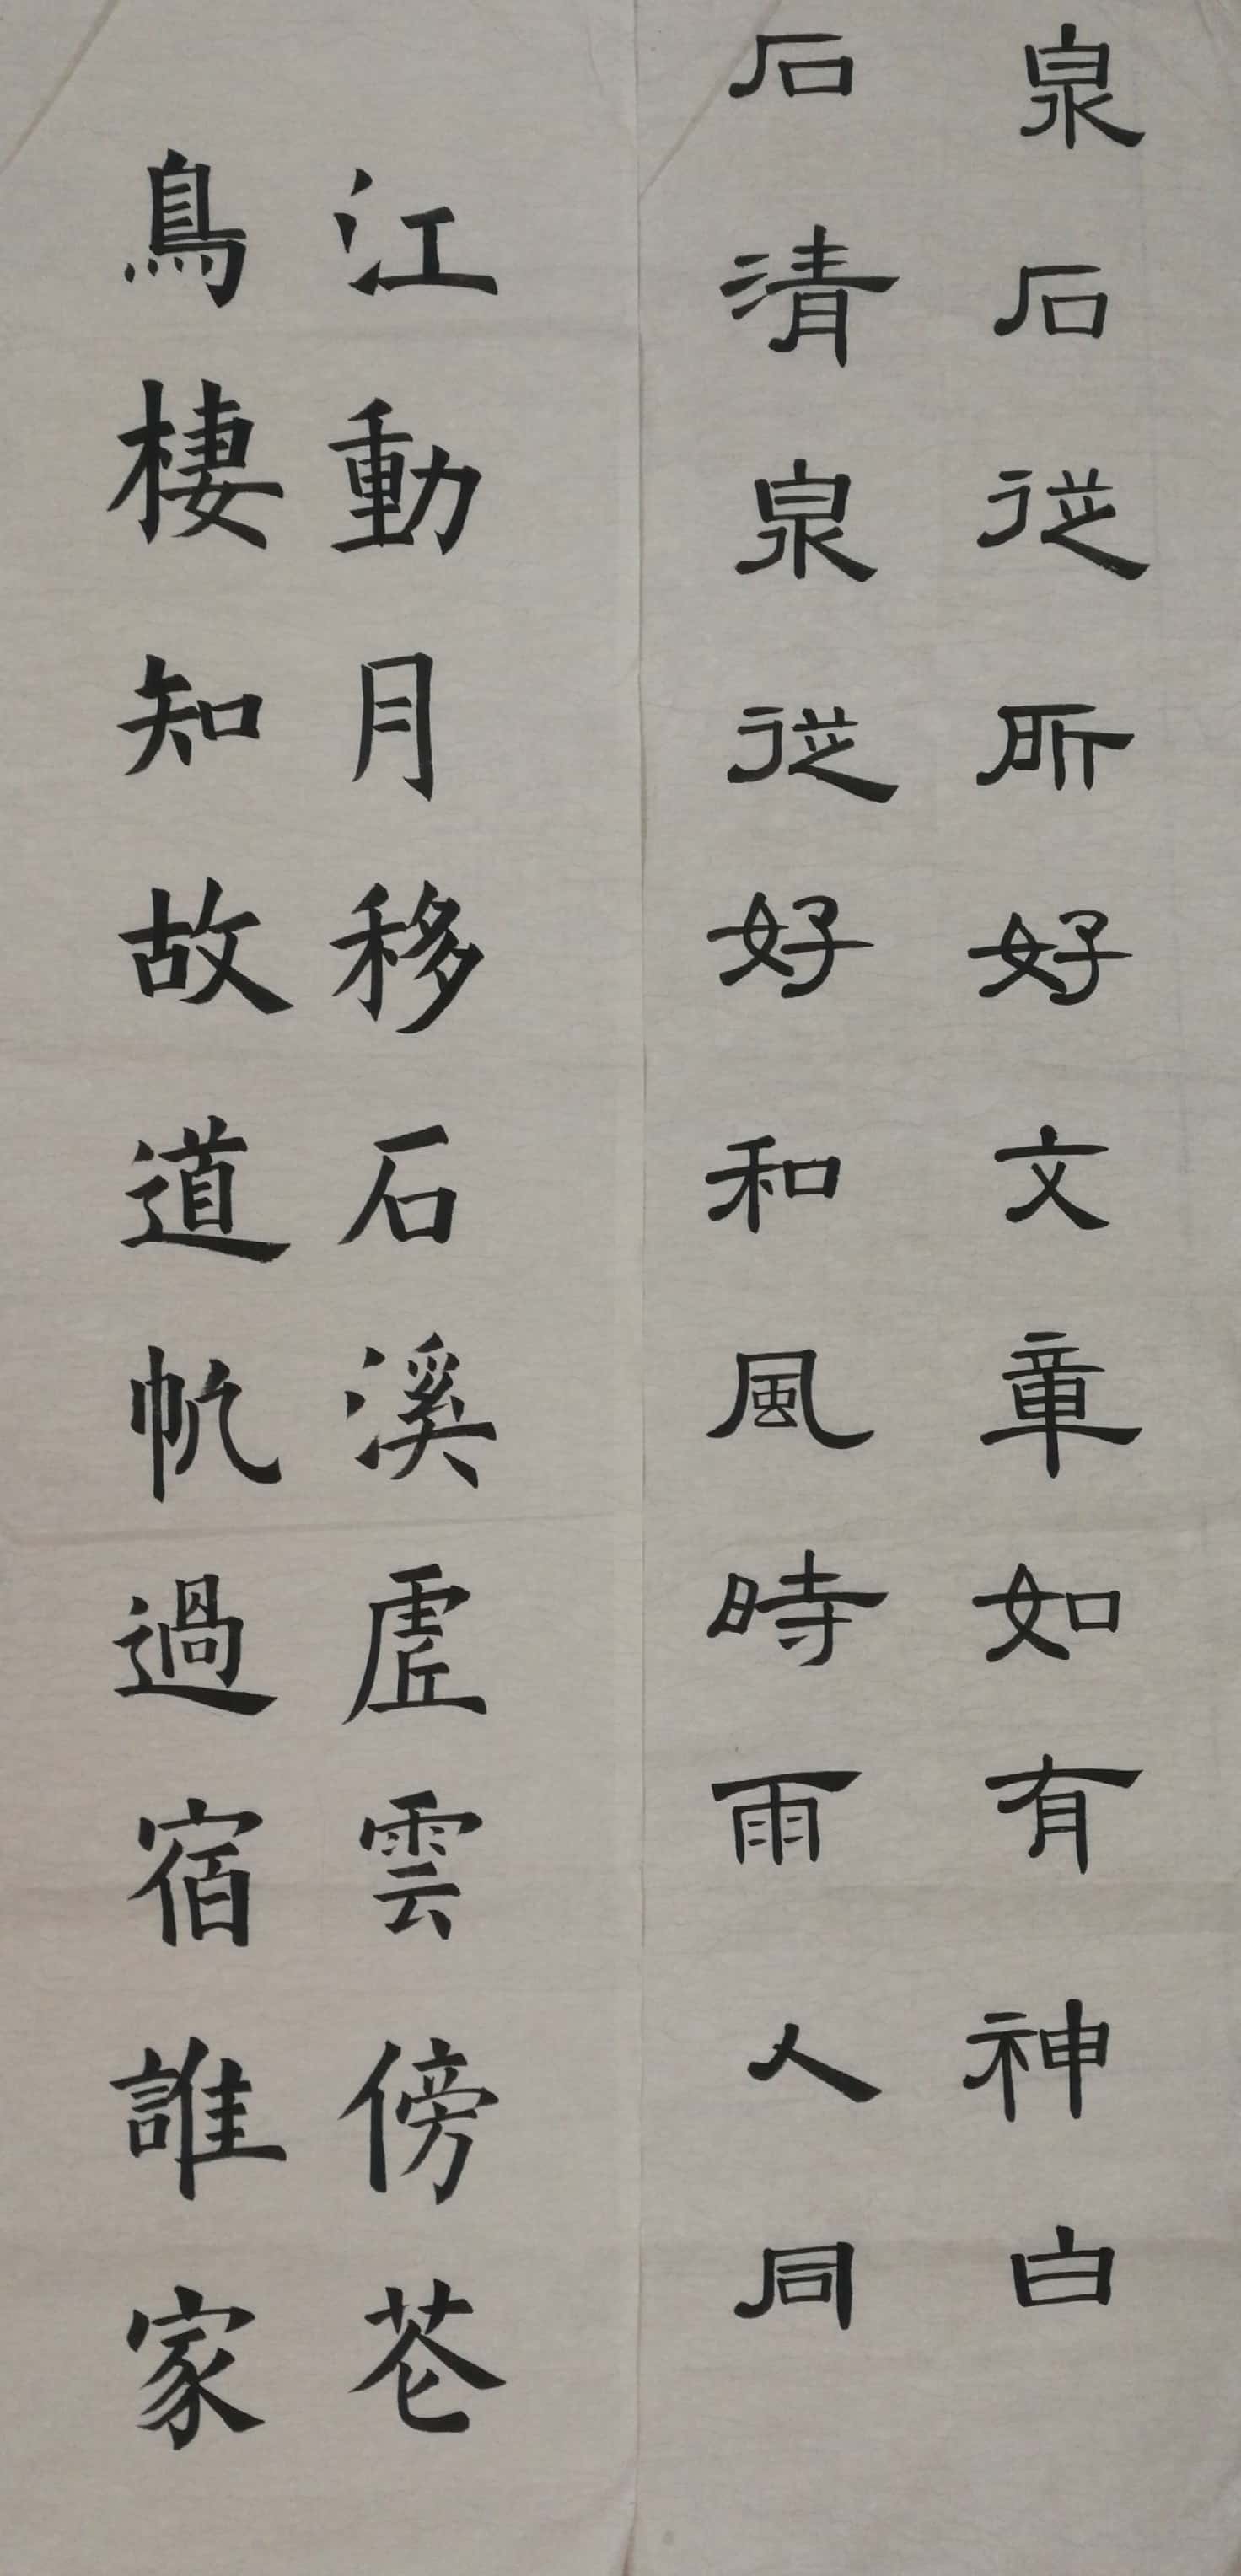 泉石從所好文章如有神白
石清泉從好和風時雨人同
江動月移石溪虛雲傍花
鳥棲知故道帆過宿誰家